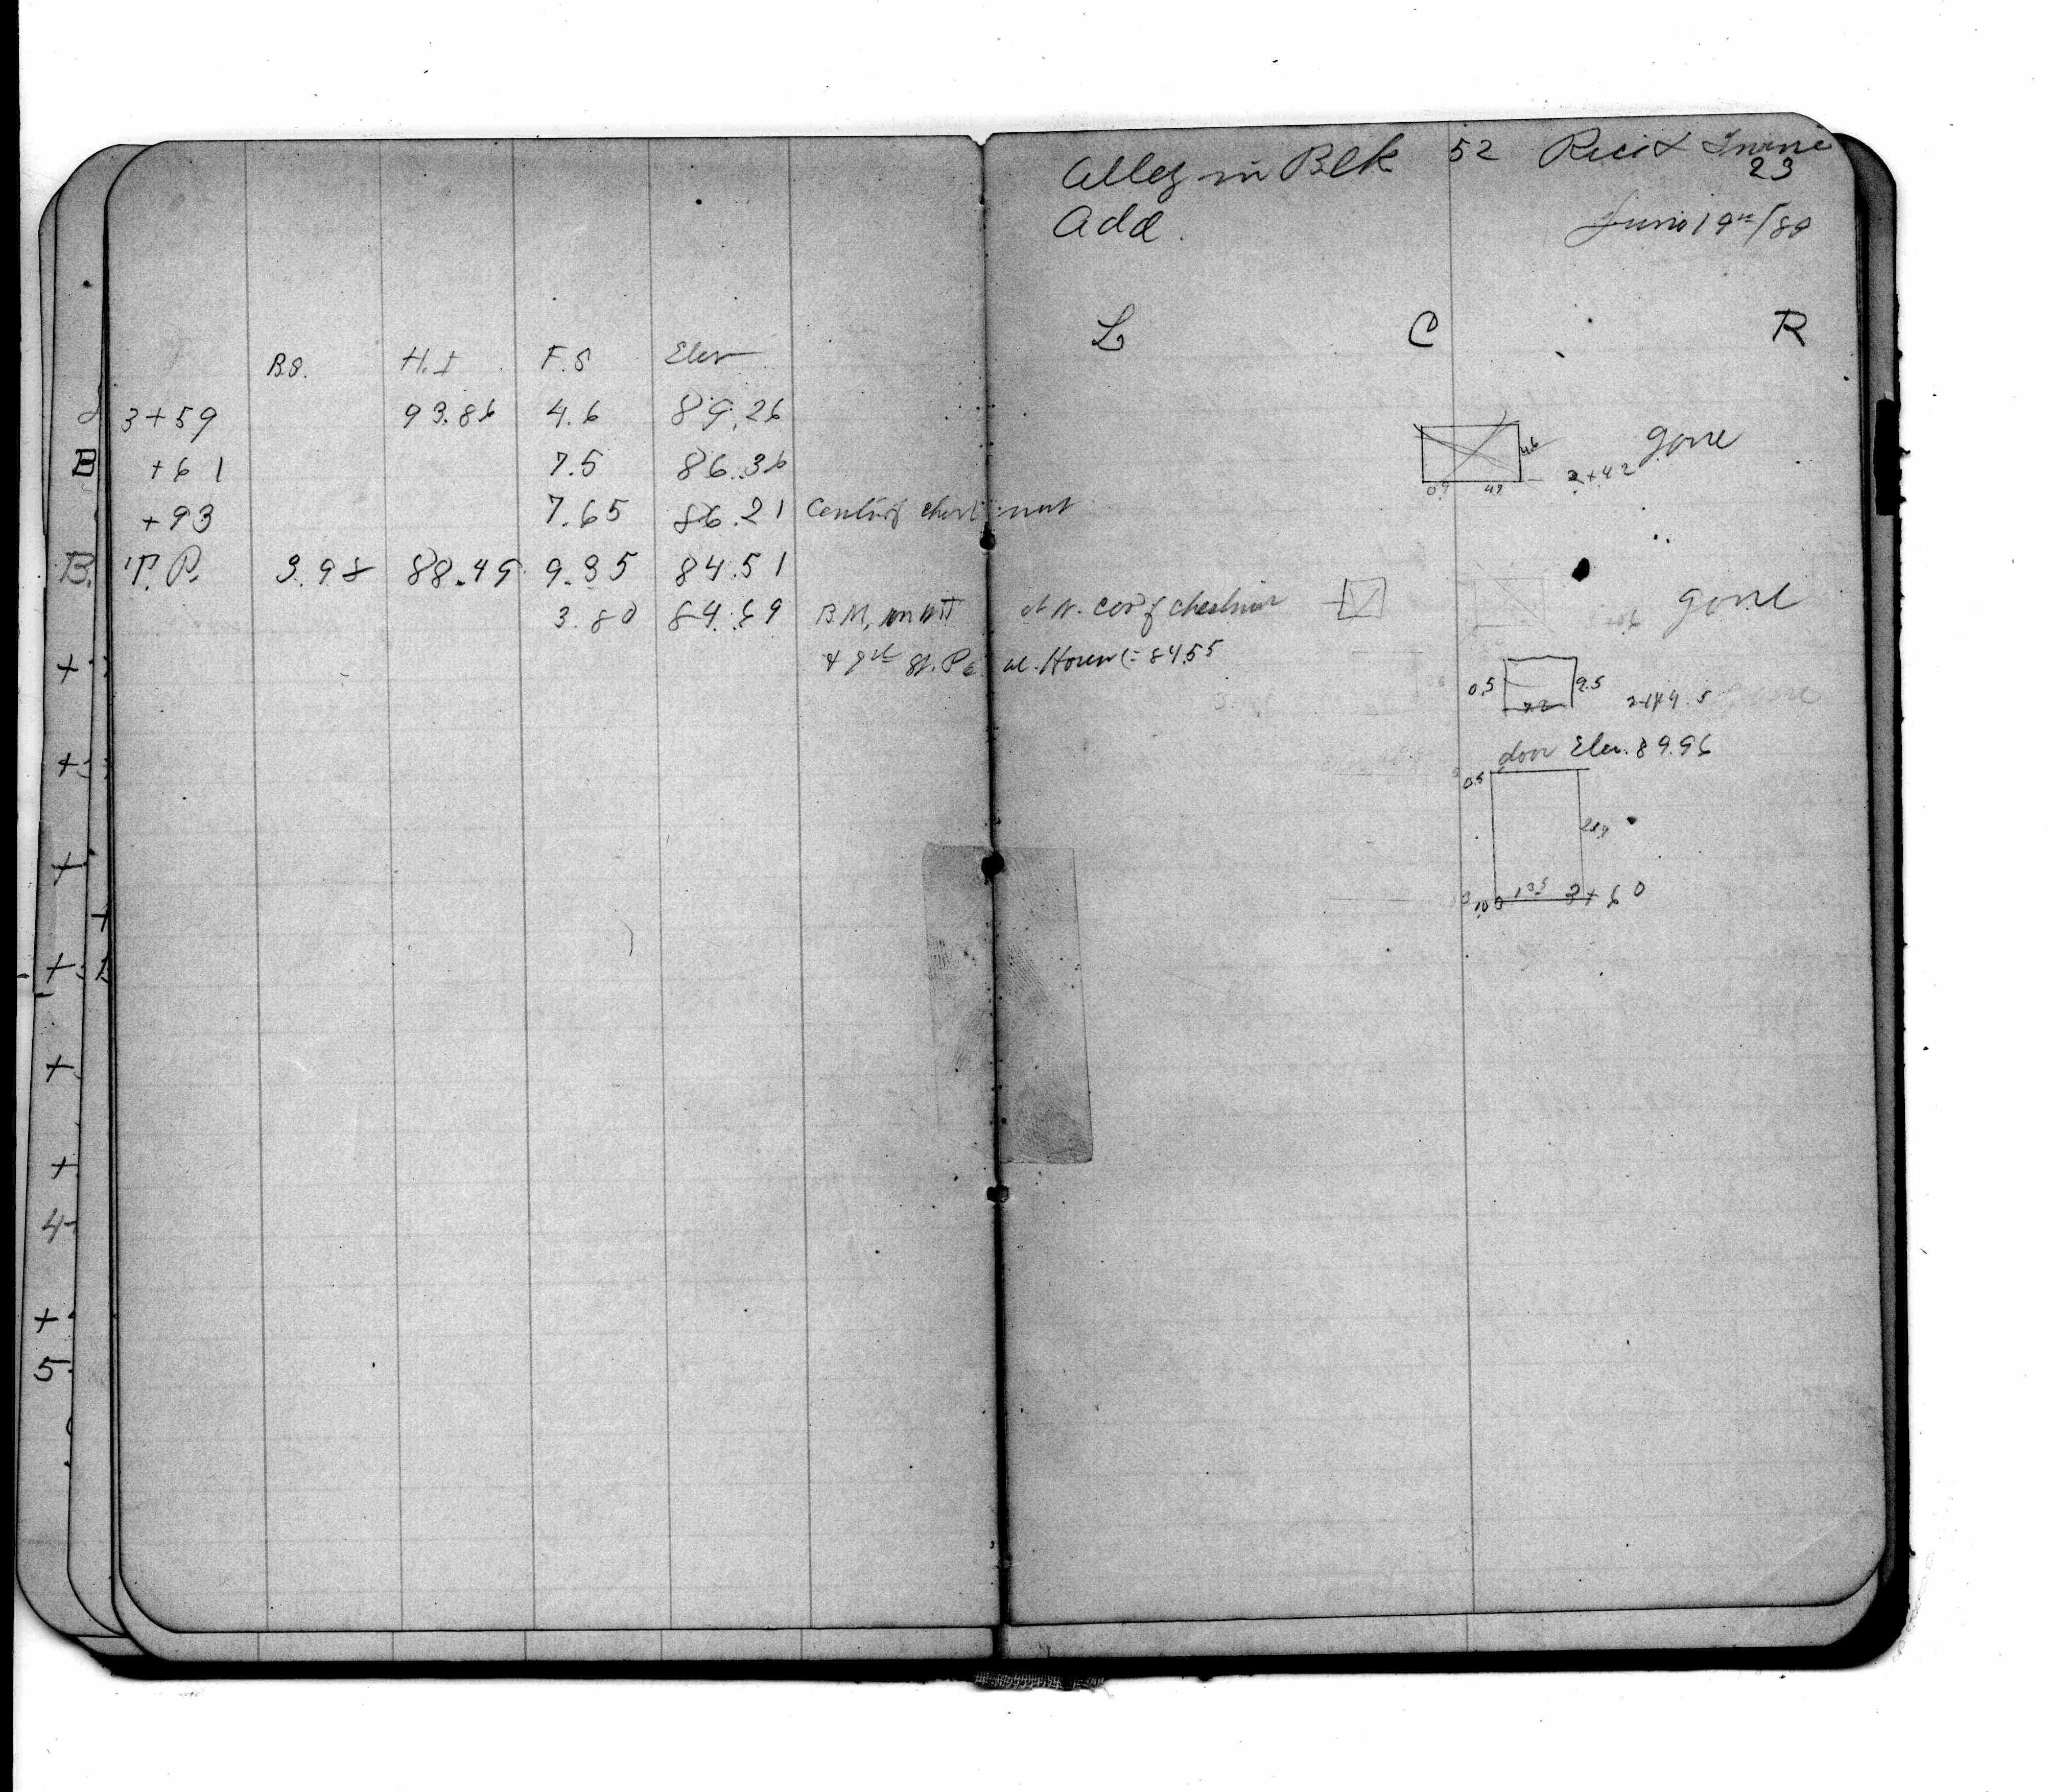 Alley in Blk 52 Rice & Irvine
23
Add. June 19th/89
L C R
B.S. H.I F.S Elev
3+59 93.86 4.6 89.26
+61 7.5 86.36
+93 7.65 86.21 Center of chestnut
T.P. 3.98 88.49 9.35 84.51
3.80 84.69 B.M. on at N. cor of chestnut
& St. = 84.55
4.6
0.9 49 3+42 gone
gone
0.5 9.5
door Elev. 89.96
0.5
10.0 13.5 3+60